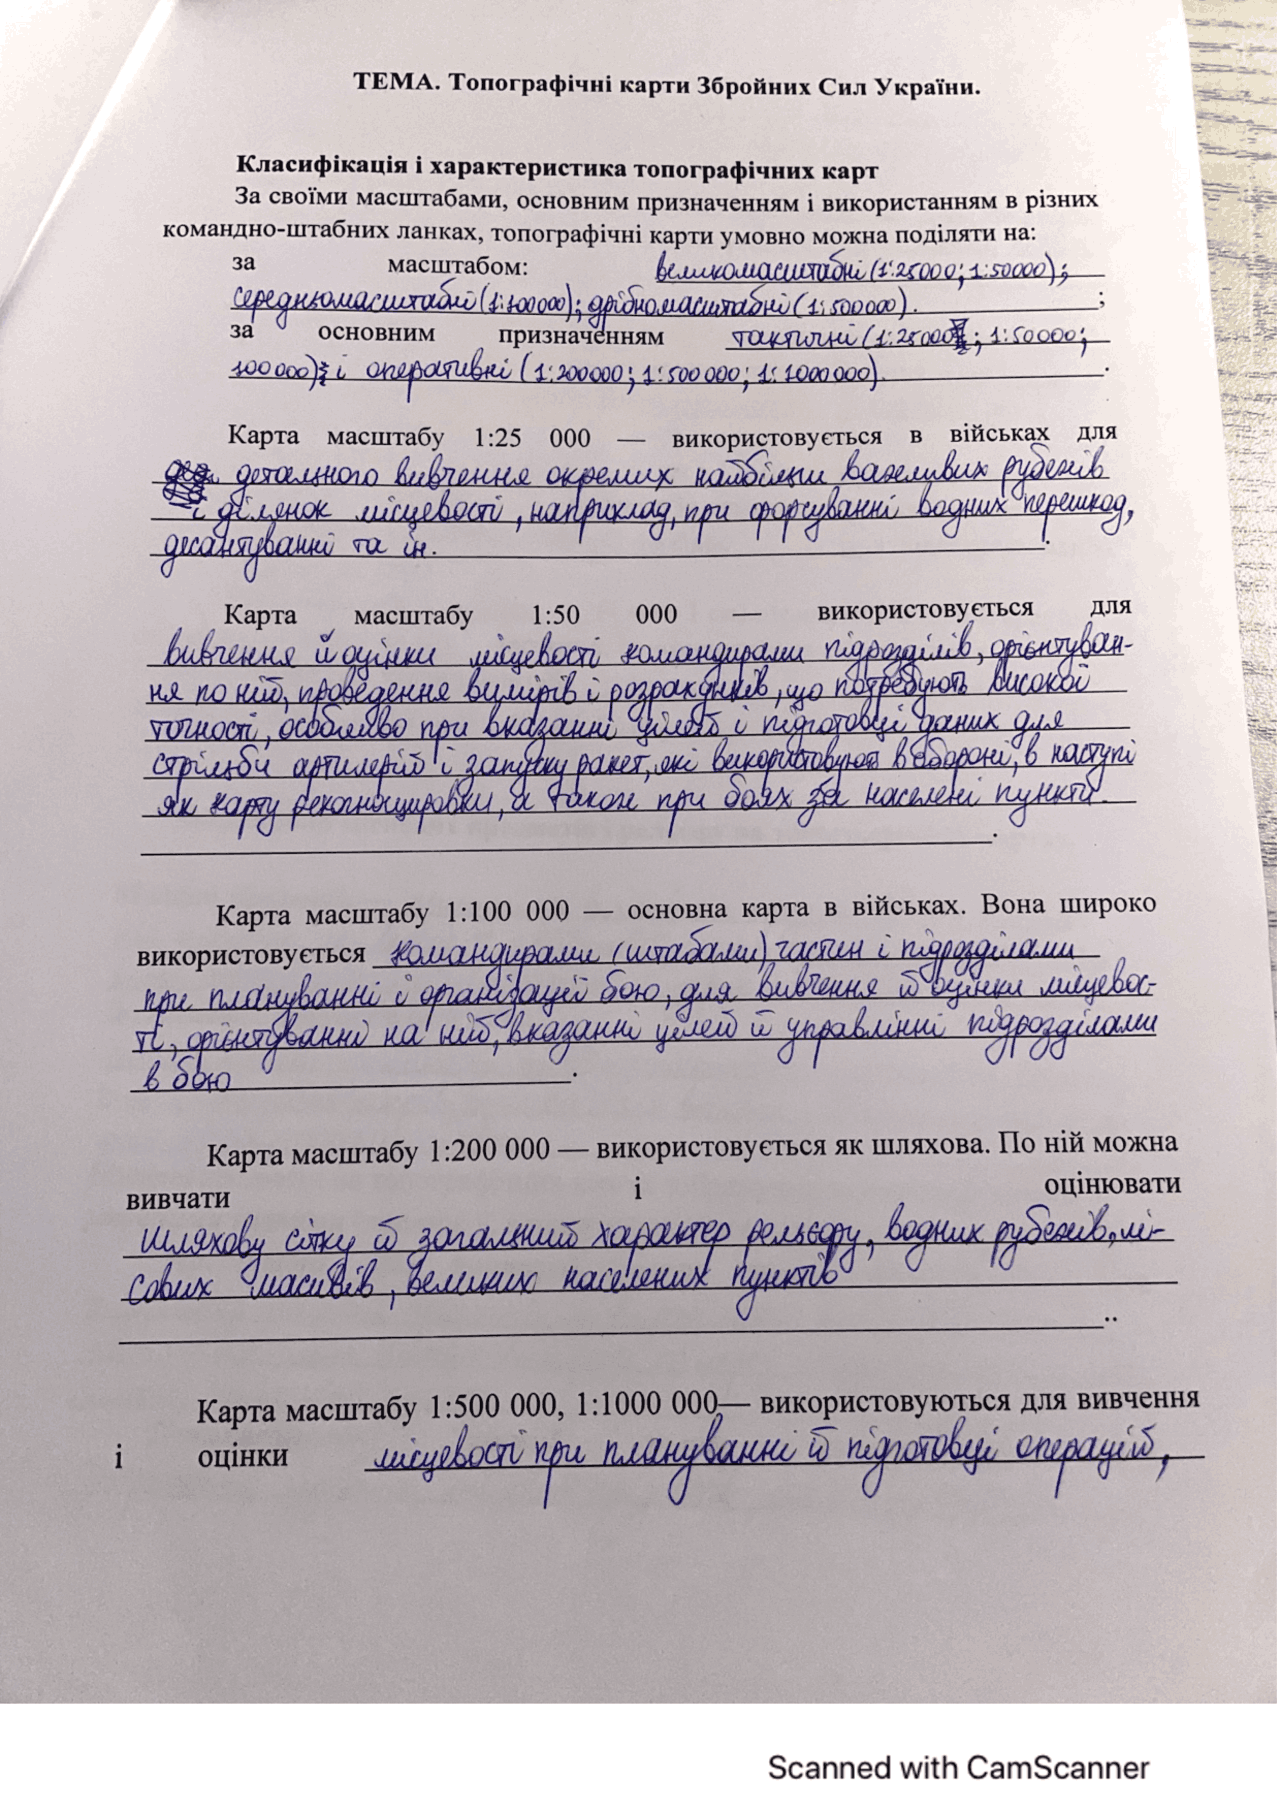 ТЕМА. Топографічні карти Збройних Сил України.
Класифікація і характеристика топографічних карт
За своїми масштабами, основним призначенням і використанням в різних
командно-штабних ланках, топографічні карти умовно можна поділяти на:
за масштабом: великомасштабні (1:25000; 1:50000);
середньомасштабні (1:100000); дрібномасштабні (1:500000). ;
за основним призначенням тактичні (1:25000; 1:50000;
100000) і оперативні (1:200000; 1:500000; 1:1000000). .
Карта масштабу 1:25 000 — використовується в військах для
детального вивчення окремих найбільш важливих рубежів
і ділянок місцевості, наприклад, при форсуванні водних перешкод,
десантуванні та ін. .
Карта масштабу 1:50 000 — використовується для
вивчення й оцінки місцевості командирами підрозділів, орієнтуван-
ня по ній, проведення вимірів і розрахунків, що потребують високої
точності, особливо при вказанні цілей і підготовці даних для
стрільби артилерій і запуску ракет, які використовують в обороні, в наступі
як карту рекогносцировки, а також при боях за населені пункти.
.
Карта масштабу 1:100 000 — основна карта в військах. Вона широко
використовується командирами (штабами) частин і підрозділами
при плануванні і організації бою, для вивчення й оцінки місцевос-
ті, орієнтуванні на ній, вказанні цілей й управлінні підрозділами
в бою .
Карта масштабу 1:200 000 — використовується як шляхова. По ній можна
вивчати і оцінювати
шляхову сітку й загальний характер рельєфу, водних рубежів, лі-
сових масивів, великих населених пунктів
..
Карта масштабу 1:500 000, 1:1000 000— використовуються для вивчення
і оцінки місцевості при плануванні й підготовці операцій,
Scanned with CamScanner